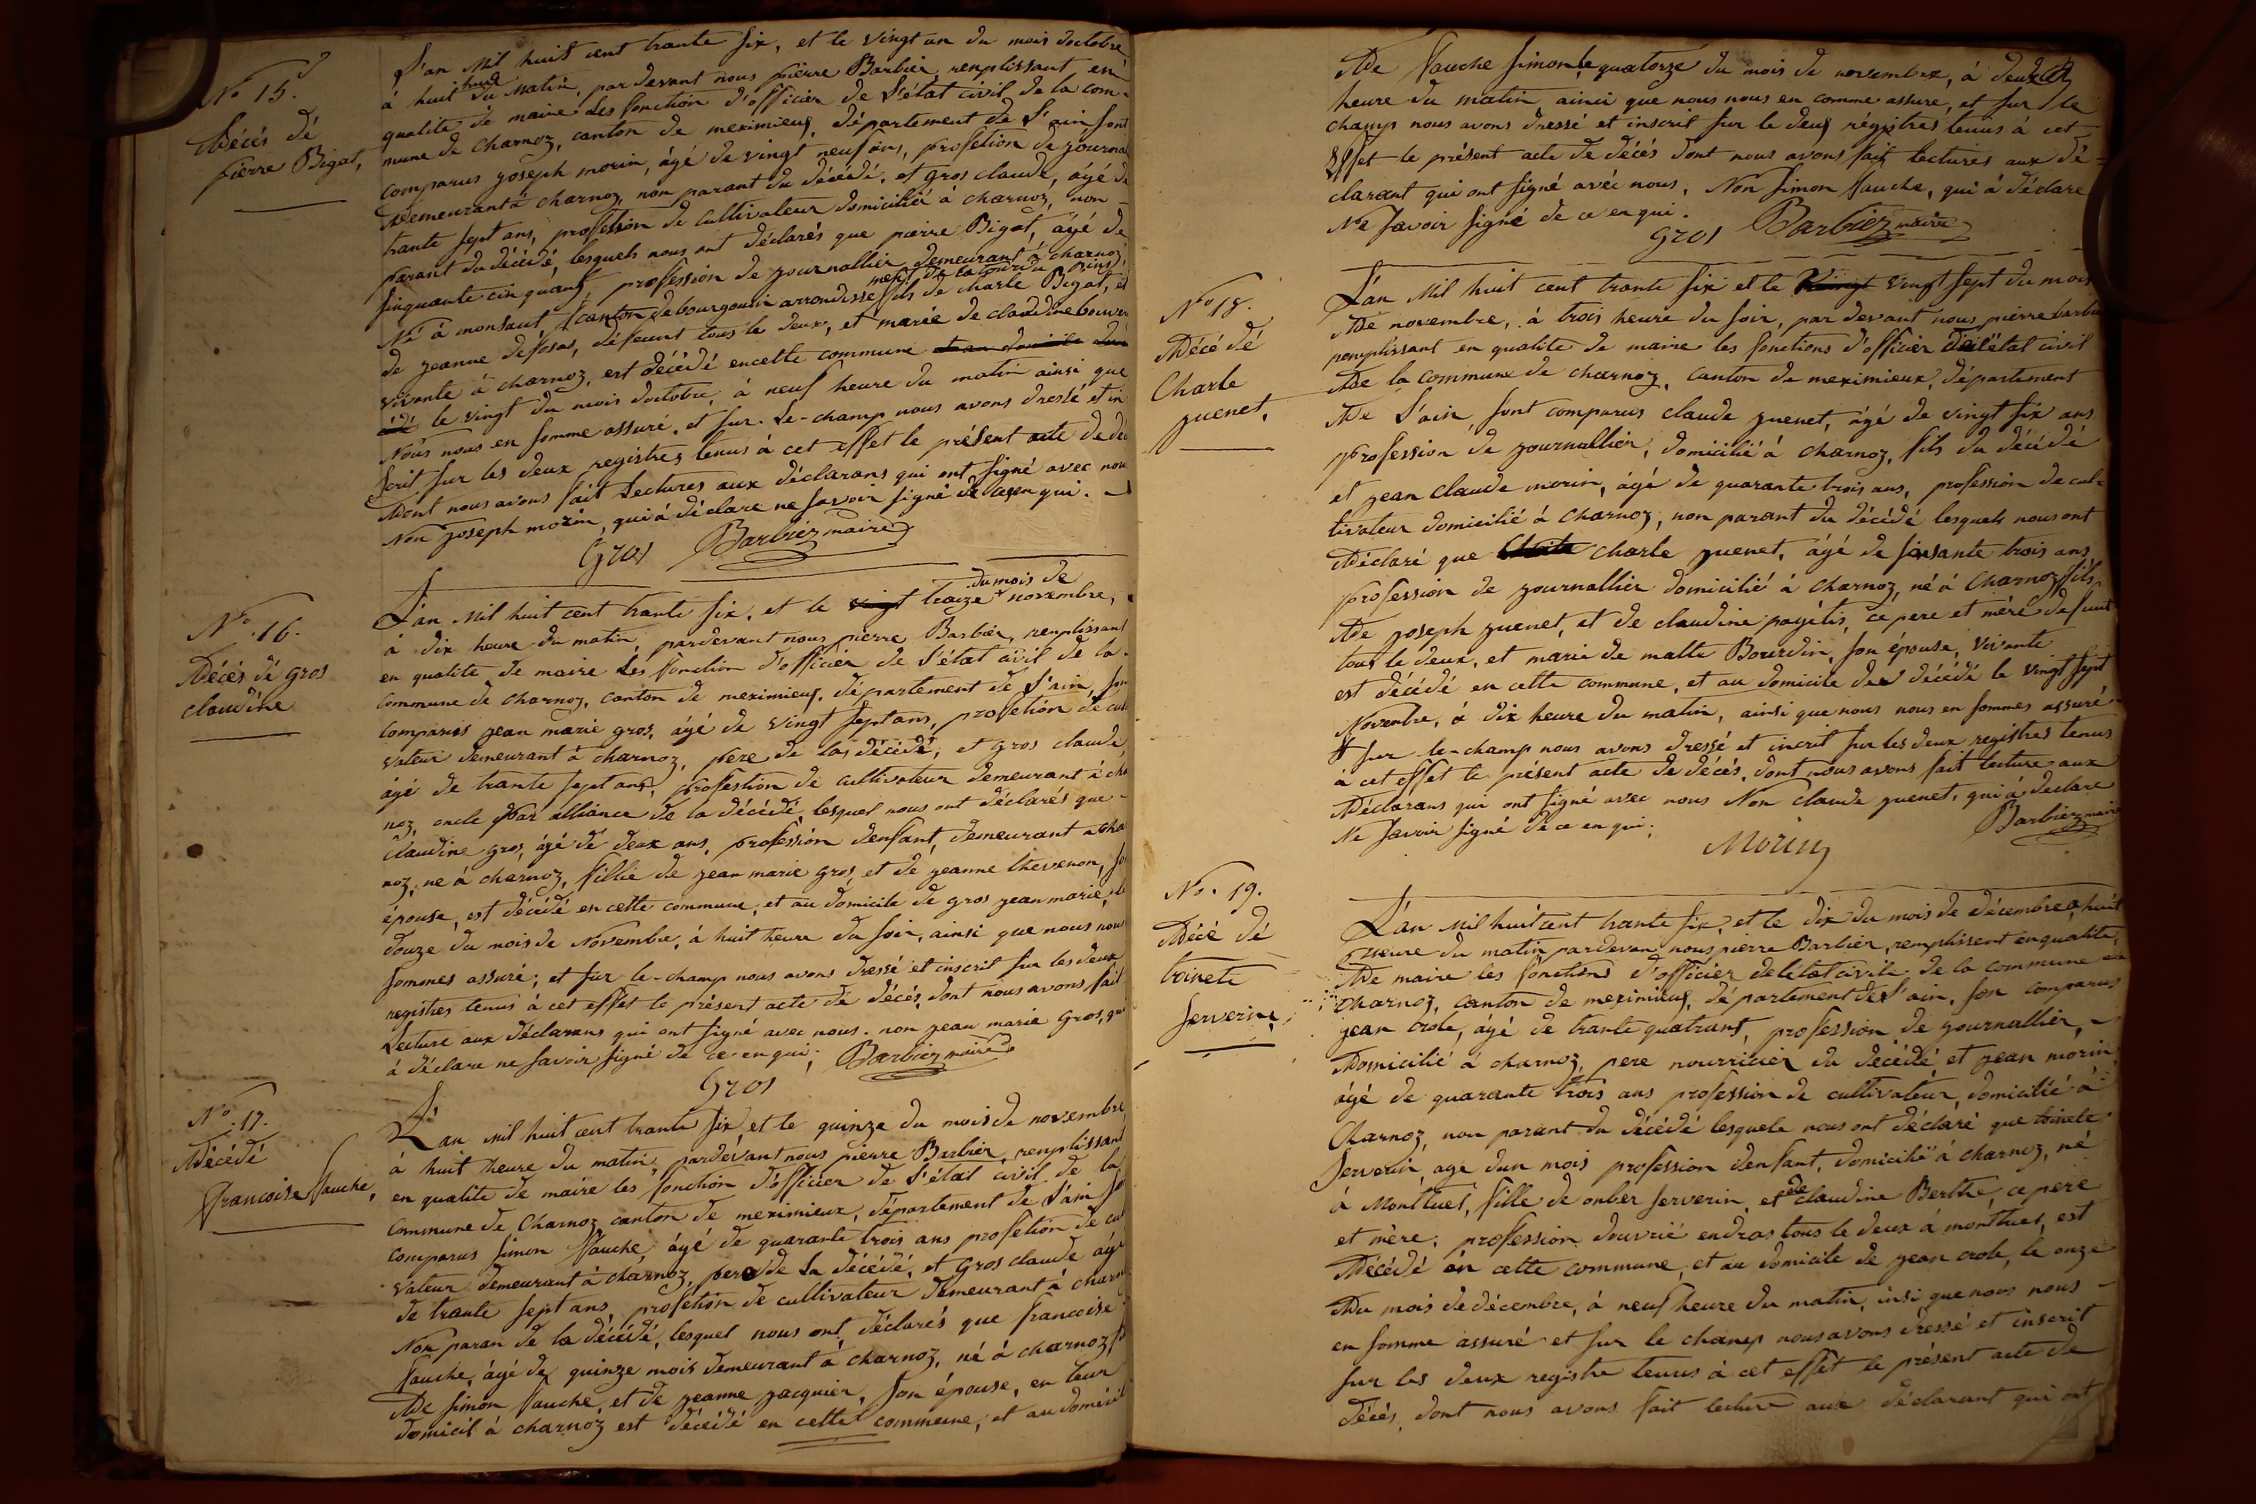 No 15.
Décés dé
pierre Bigot,
L'an Mil huit cent trante six, et le vingt un du mois doctobre
à huit heure du Matin, par devant nous pierre Barbier, renplissant en
qualite de maire Les fonction d'officier de L'état civil de la com-
mune de Charnoz, canton de meximieux, département de L'ain sont
comparus joseph morin, âgé de vingt neuf ans, profetion de journa
demeurant à charnoz, non parant du décédé, et gros claude, âgé de
trante sept ans, profession de cultivateur domicilié à charnoz, non
parant du décédé, lesquels nous ont déclarés que pierre Bigot, âgé de
sinquante cinq ans, profession de journallier demeurant à charnoz,
Né à monsaut, canton de bourgouin arrondisse ment de latour du pins fils de charle Bigot, et
de jeanne defosas, défeunt tous le deux, et mariée de claudine bouvre
vivente à charnoz, est décédé encette commune
le vingt du mois doctobre, à neuf heure du matin ainsi que
Nous nous en somme assuré, et sur-Le-champ nous avons dressé et in
scrit sur les deux registres tenus à cet effet le présent acte de dé
Dont nous avons fait Lectures aux déclarans qui ont signé avec nou
Non joseph morin, qui à déclare ne savoir signé de ce en qui. -
Gros Barbier maire
No .16.
Décés dé gros
claudine
L'an Mil huit cent trante six, et le vingt traize du mois de novembre,
à dix heure du matin, pardevant nous pierre Barbier, renplissant
en qualite de maire Les fonction d'officier de L'état civil de la
commune de Charnoz, canton de meximieux, département de L'ain, son
comparus jean marie gros, âgé de vingt sept ans, profetion de cul
vateur demeurant à charnoz, pere de la décédé, et gros claude,
âgé de trante sept ans, profestion de cultivateur demeurant à cha
noz, oncle par alliance de la décédé, lesquel nous ont déclarés que -
claudine gros, âgé de deux ans, profession denfant, demeurant a cha
noz, ne à charnoz, fillie de jean marie gros, et de jeanne thevenon, so
épouse, est décédé en cette commune, et au domicile de gros jean marie, le
douze du mois de Novembre, à huit heure du soir, ainsi que nous nous
sommes assuré, et sur le-champ nous avons dressé et inscrit sur les deux
registres tenus à cet effet le présent acte de décés, dont nous avons fait
Lecture aux déclarans qui ont signé avec nous. non jean marie Gros, qui
à déclare ne savoir signé de ce en qui; Barbier maire
Gros
No .17.
Décédé
francoise fauche,
L'an Mil huit cent trante six et le quinze du mois de novembre
à huit heure du matin, pardevant nous pierre Barbier, renplissant
en qualite de maire les fonction d'officier de L'état civil de la
commune de Charnoz canton de meximieux, département de L'ain so
comparus simon fauche âgé de quarante trois ans profetion de cul
vateur demeurant à charnoz, pere de La décédé, et gros claude âgé
de trante sept ans, profetion de cultivateur demeurant à charn
Non paran de la décédé, lesquel nous ont déclarés que francoise
fauche, âgé de quinze mois demeurant à charnoz, né à charnoz fi
De simon fauche, et de jeanne jacquier, son épouse, en leur
domicil à charnoz est décédé en cette commune, et au domicil
De fauche simon le quatorze du mois de novembre, à deux
heure du matin, ainci que nous nous en comme assure, et sur le
champ nous avons dressé et inscrit sur le deux régistres tenus à cet
effet le présent acte de décés dont nous avons fait lectures aux dé-
clarant qui ont signé avéc nous, Non simon fauche, qui à déclare
Ne savoir signé de ce en qui.
Gros Barbier maire
No 18.
Décé dé
Charle
guenet,
L'an Mil huit cent trante six et le vingt sept du mois
De novembre, à trois heure du soir, par devant nous pierre barbi
remplissant en qualite de maire les fonctions d'officier de l'état civil
De la commune de charnoz, canton de meximieux, département
De L'ain, sont comparus claude guenet, âgé de vingt six ans
profession de journallier, domicilié à charnoz, fils du décédé
et jean claude morin, âgé de quarante trois ans, profession de cul-
tivateur domicilié à charnoz, non parant du décédé lesquels nous ont
Déclaré que charle guenet, âgé de soixsante trois ans,
profession de journallier domicilié à charnoz, né à charnoz fils
De joseph guenet, et de claudine payétis, ce pere et mère defunt
tout le deux, et marié de matte Bourdin, son épouse, vivante
est décédé en cette commune, et au domicile de décédé le vingt sept
Novembre, à dix heure du matin, ainsi que nous nous en sommes assuré
sur le-champ nous avons dressé et incrit sur les deux registres tenus
à cet effet le présent acte de décés, dont nous avons fait lecture aux
Déclarans qui ont signé avec nous Non claude guenet, qui à declare
Ne savoir signé de ce en qui;
Morin Barbier maire
No. 19.
Décé dé
toinete
serverin,
L'an Mil huit cent trante six, et le dix du mois de décembre à huit
heure du matin pardevan nous pierre Barbier, remplissent enqualite,
De maire les fonctions d'officier de létat civile de la commune
charnoz, canton de meximieux, département de l'ain, son comparus
jean crole, âgé de trante quatrant, profession de journallier, -
Domicilié à charnoz, pere nourricier du décédé et jean morin
âgé de quarante trois ans profession de cultivateur, domicilié à
Charnoz, non parant du décédé lesquele nous ont déclaré que toinete
serverin age dun mois profession denfant, domicilié à charnoz, né
à Montluet, fille de onber serverin, et de claudine Berthe, ce pere
et mère, profession douvrié endras tous le deux à montluet, est
Décédé en cette commune, et au domicile de jean crole, le onze
Du mois de décembre, à neuf heure du matin, insi que nous nous -
en somme assuré et sur le chanp nous avons dressé et inscrit
sur les deux registre tenus à cet effet le présent acte de
décés, dont nous avons fait lecture aux déclarant qui ont